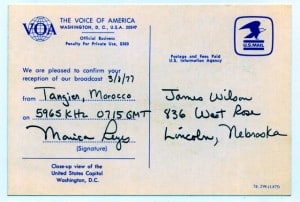 VOA
THE VOICE OF AMERICA
WASHINGTON, D. C., U.S.A. 20547
Official Business
Penalty For Private Use, $300
U.S. MAIL
Postage and Fees Paid
U.S. Information Agency
We are pleased to confirm your
reception of our broadcast 3/8/77
from Tangier, Morocco
on 5965 KHz 0715 GMT
Monica Reyes
(Signature)
James Wilson
836 West Rose
Lincoln, Nebraska
Close-up view of the
United States Capitol
Washington, D.C.